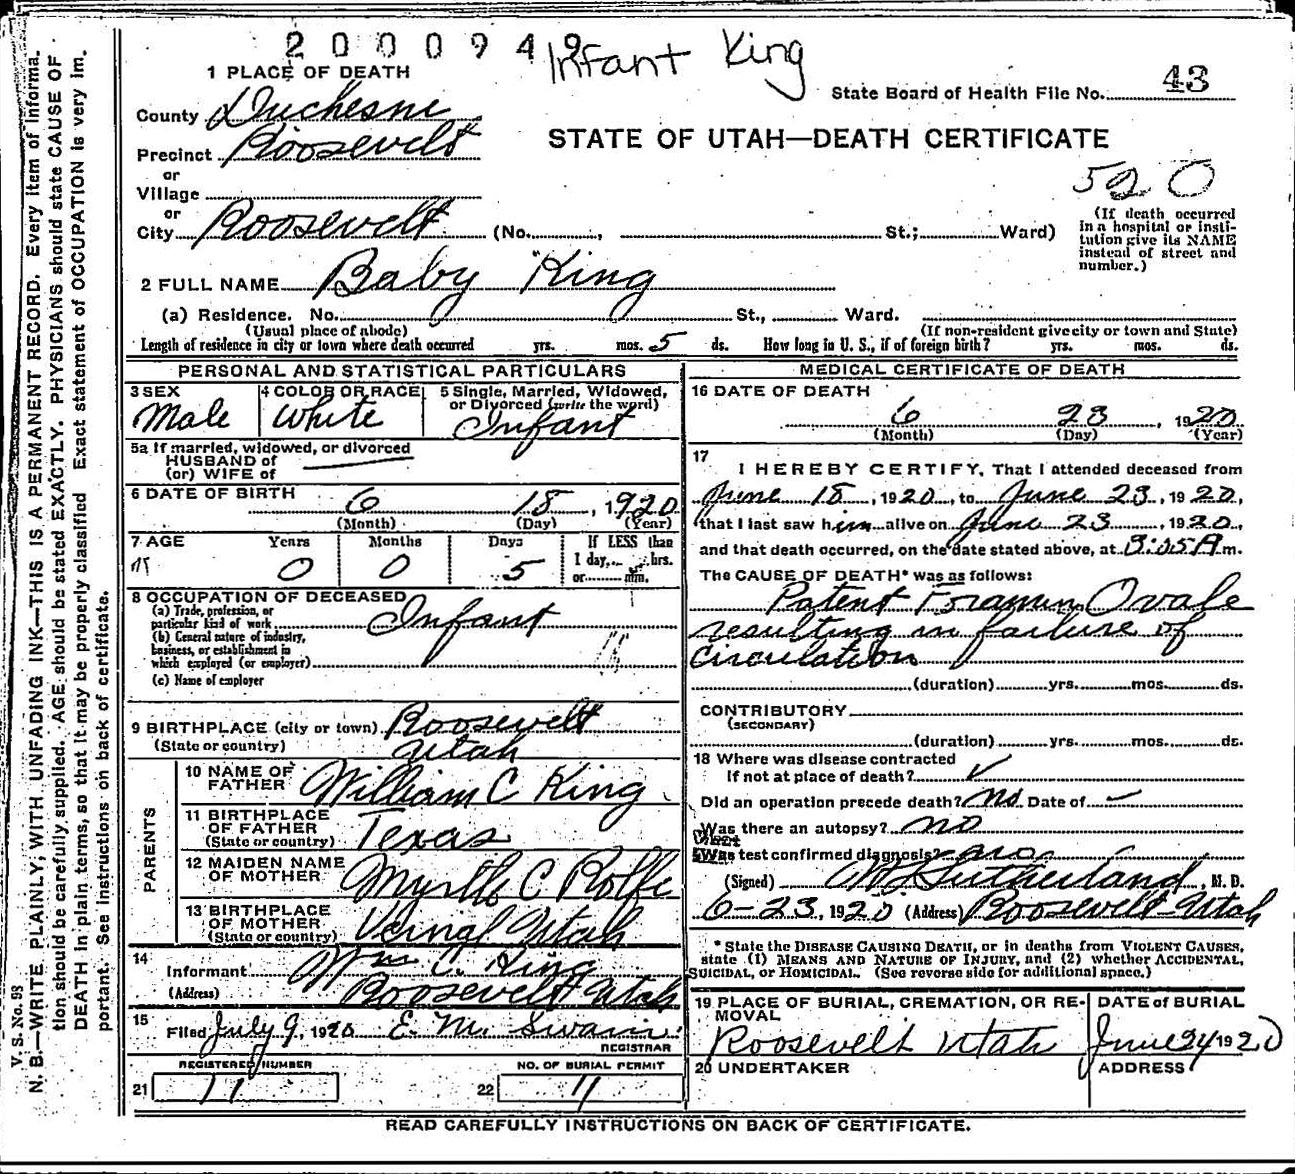 2000949 Infant King
1 PLACE OF DEATH
State Board of Health File No. 43
County Duchesne
STATE OF UTAH—DEATH CERTIFICATE
Precinct Roosevelt
or
Village
520
or
City Roosevelt (No. , St.; Ward)
(If death occurred
in a hospital or insti-
tution give its NAME
instead of street and
number.)
2 FULL NAME Baby King
(a) Residence. No. St., Ward.
(Usual place of abode) (If non-resident give city or town and State)
Length of residence in city or town where death occurred yrs. mos. 5 ds. How long in U. S., if of foreign birth? yrs. mos. ds.
PERSONAL AND STATISTICAL PARTICULARS
3 SEX 4 COLOR OR RACE 5 Single, Married, Widowed,
or Divorced (write the word)
Male White Infant
5a If married, widowed, or divorced
HUSBAND of
(or) WIFE of
6 DATE OF BIRTH 6 18, 1920
(Month) (Day) (Year)
7 AGE Years Months Days If LESS than
1 day, hrs.
or min.
0 0 5
8 OCCUPATION OF DECEASED
(a) Trade, profession, or
particular kind of work Infant
(b) General nature of industry,
business, or establishment in
which employed (or employer)
(c) Name of employer
9 BIRTHPLACE (city or town) Roosevelt
(State or country) Utah
PARENTS
10 NAME OF
FATHER William C King
11 BIRTHPLACE
OF FATHER
(State or country) Texas
12 MAIDEN NAME
OF MOTHER Myrtle C Rolfe
13 BIRTHPLACE
OF MOTHER
(State or country) Utah
14 Informant Wm C. King
(Address) Roosevelt Utah
15 Filed July 9, 1920 E. M. Swain
REGISTRAR
REGISTERED NUMBER NO. OF BURIAL PERMIT
21 11 22 11
MEDICAL CERTIFICATE OF DEATH
16 DATE OF DEATH
6 23, 1920
(Month) (Day) (Year)
17 I HEREBY CERTIFY, That I attended deceased from
June 18, 1920, to June 23, 1920,
that I last saw him alive on June 23, 1920,
and that death occurred, on the date stated above, at 3:05 A m.
The CAUSE OF DEATH* was as follows:
Patent Foramen Ovale
resulting in failure of
circulation
(duration) yrs. mos. ds.
CONTRIBUTORY
(SECONDARY)
(duration) yrs. mos. ds.
18 Where was disease contracted
if not at place of death? ✓
Did an operation precede death? no Date of —
Was there an autopsy? no
Was test confirmed diagnosis? no
(Signed) Sutherland, M. D.
6-23, 1920 (Address) Roosevelt Utah
* State the DISEASE CAUSING DEATH, or in deaths from VIOLENT CAUSES,
state (1) MEANS AND NATURE OF INJURY, and (2) whether ACCIDENTAL,
SUICIDAL, or HOMICIDAL. (See reverse side for additional space.)
19 PLACE OF BURIAL, CREMATION, OR RE-
MOVAL
Roosevelt Utah
DATE of BURIAL
June 24 1920
20 UNDERTAKER ADDRESS
READ CAREFULLY INSTRUCTIONS ON BACK OF CERTIFICATE.
V. S. No. 98
N. B.—WRITE PLAINLY, WITH UNFADING INK—THIS IS A PERMANENT RECORD. Every item of informa-
tion should be carefully supplied. AGE should be stated EXACTLY. PHYSICIANS should state CAUSE OF
DEATH in plain terms, so that it may be properly classified. Exact statement of OCCUPATION is very im-
portant. See instructions on back of certificate.